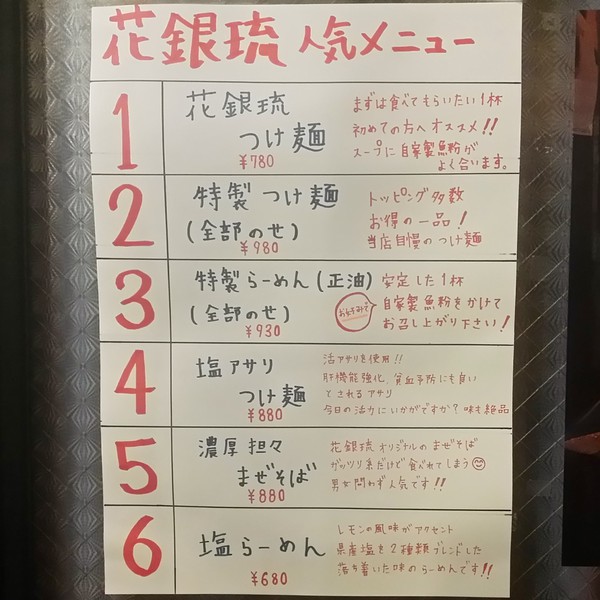 花銀琉 人気メニュー
1
花銀琉
つけ麺
¥780
まずは食べてもらいたい1杯
初めての方へオススメ!!
スープに自家製魚粉が
よく合います。
2
特製つけ麺
(全部のせ)
¥980
トッピング多数
お得の一品!
当店自慢のつけ麺
3
特製らーめん(正油)
(全部のせ)
¥930
安定した1杯
お好みで
自家製魚粉をかけて
お召し上がり下さい!
4
塩アサリ
つけ麺
¥880
活アサリを使用!!
肝機能強化、貧血予防にも良い
とされるアサリ
今日の活力にいかがですか?味も絶品
5
濃厚担々
まぜそば
¥880
花銀琉オリジナルのまぜそば
ガッツリ系だけど食べれてしまう
男女問わず人気です!!
6
塩らーめん
¥680
レモンの風味がアクセント
県産塩を2種類ブレンドした
落ち着いた味のらーめんです!!